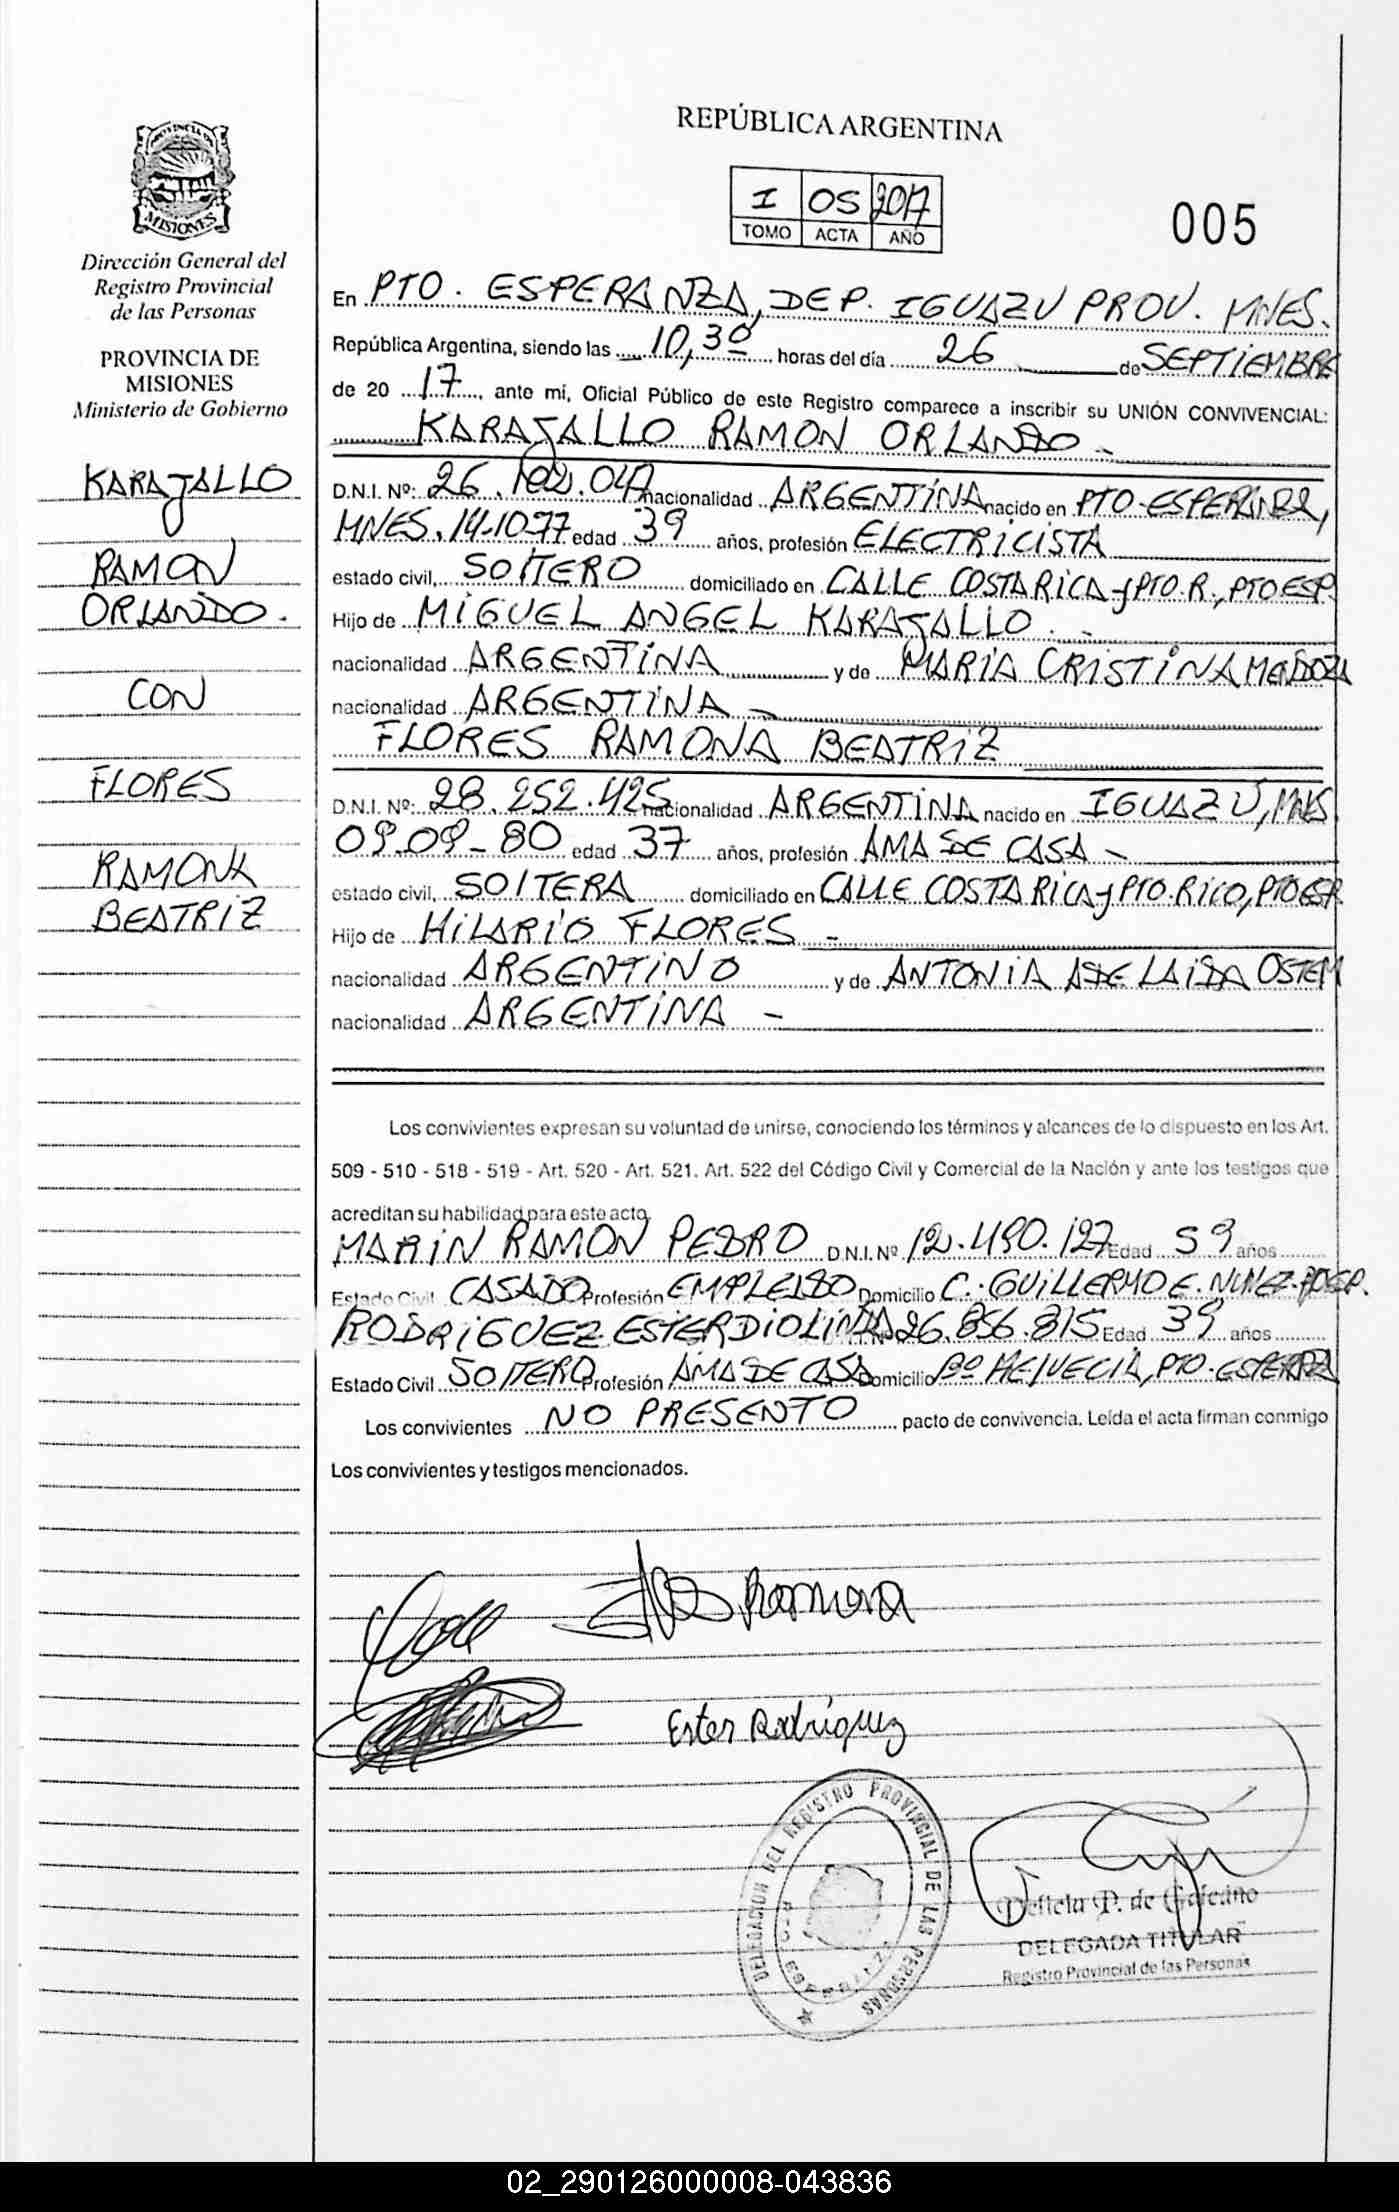 PROVINCIA DE
MISIONES
Dirección General del
Registro Provincial
de las Personas
PROVINCIA DE
MISIONES
Ministerio de Gobierno
KARAJALLO
RAMON
ORLANDO.
CON
FLORES
RAMONA
BEATRIZ
REPÚBLICA ARGENTINA
I 05 2017
TOMO ACTA AÑO
005
En PTO. ESPERANZA, DEP. IGUAZU PROV. MNES.
República Argentina, siendo las 10,30 horas del día 26 de SEPTIEMBRE
de 20 17, ante mí, Oficial Público de este Registro comparece a inscribir su UNIÓN CONVIVENCIAL:
KARAJALLO RAMON ORLANDO -
D.N.I. Nº: 26.102.047 nacionalidad ARGENTINA nacido en PTO-ESPERANZA,
MNES. 14-10-77 edad 39 años, profesión ELECTRICISTA
estado civil, SOLTERO domiciliado en CALLE COSTA RICA y PTO.R., PTO ESP.
Hijo de MIGUEL ANGEL KARAJALLO. -
nacionalidad ARGENTINA y de MARIA CRISTINA MENDOZA
nacionalidad ARGENTINA -
FLORES RAMONA BEATRIZ
D.N.I. Nº: 28.252.425 nacionalidad ARGENTINA nacido en IGUAZÚ, MNES
09-09-80 edad 37 años, profesión AMA DE CASA -
estado civil, SOLTERA domiciliado en CALLE COSTA RICA y PTO.RICO, PTO ESP.
Hijo de HILARIO FLORES -
nacionalidad ARGENTINO y de ANTONIA ADELAIDA OSTEM
nacionalidad ARGENTINA -
Los convivientes expresan su voluntad de unirse, conociendo los términos y alcances de lo dispuesto en los Art.
509 - 510 - 518 - 519 - Art. 520 - Art. 521. Art. 522 del Código Civil y Comercial de la Nación y ante los testigos que
acreditan su habilidad para este acto.
MARIN RAMON PEDRO D.N.I. Nº 12.490.127 Edad 59 años
Estado Civil CASADO Profesión EMPLEADO Domicilio C. GUILLERMO E. NUÑEZ-
RODRIGUEZ ESTER DIOLINDA 26.856.815 Edad 39 años
Estado Civil SOLTERO Profesión AMA DE CASA Domicilio Bº HELVECIA, PTO-ESPERANZA
Los convivientes NO PRESENTO pacto de convivencia. Leída el acta firman conmigo
Los convivientes y testigos mencionados.
Ramona
Ester Rodriguez
DELEGACION DEL REGISTRO PROVINCIAL DE LAS PERSONAS
P. de
DELEGADA TITULAR
Registro Provincial de las Personas
02_290126000008-043836